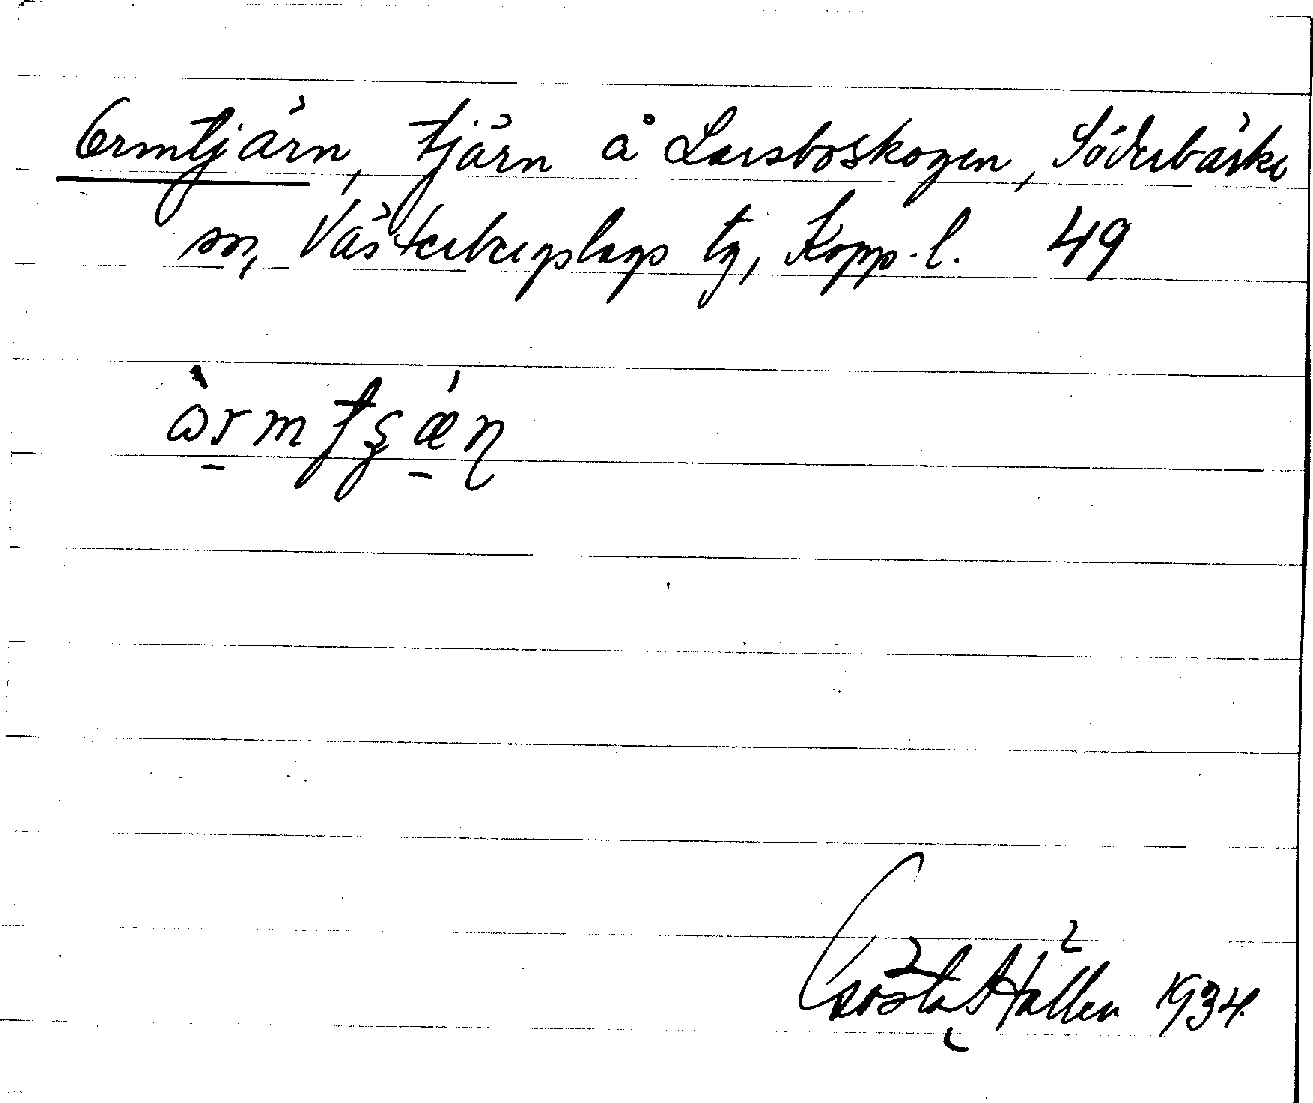 Ormtjärn, tjärn å Larsboskogen, Söderbärke
sn, Västerbergslags tg, Kopp. l. 49
ɷ̀rmtʂǽɳ
Gösta Hällen 1934.